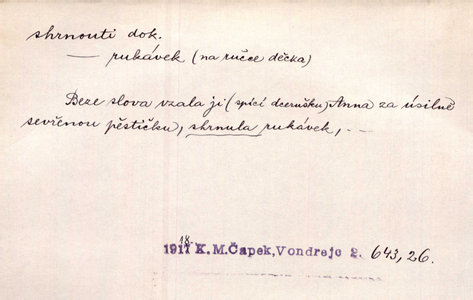 shrnouti dok.
— rukávek (na ručce děcka)
Beze slova vzala ji (spící dcerušku) Anna za úsilně
sevřenou pěstičku, shrnula rukávek, . —
18.
1917 K. M. Čapek, Vondrejc 2. 643, 26.